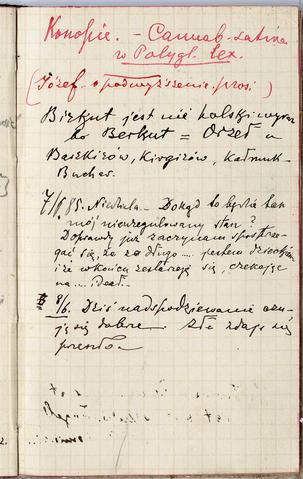 Konopie. – Cannab. satina
w Polygl. lex.
(Józef o podwyższenie prosi)
Birkut jest nie polski wyraz
to Berkut = Orzeł u
Baszkirów, Kirgizów, Kałmuk.
Buchar.
7/6 85. Niedziela – Dokąd to będzie ten
mój nieuregulowany stan?
Doprawdy już zaczynam spostrze-
gać się, że za długo .... jestem dzieckiem
i że w końcu zestarzeję się, czekając
na ....
8/6. Dziś nadspodziewanie czu-
ję się dobrze Złe zdaje się
przeszło
2.